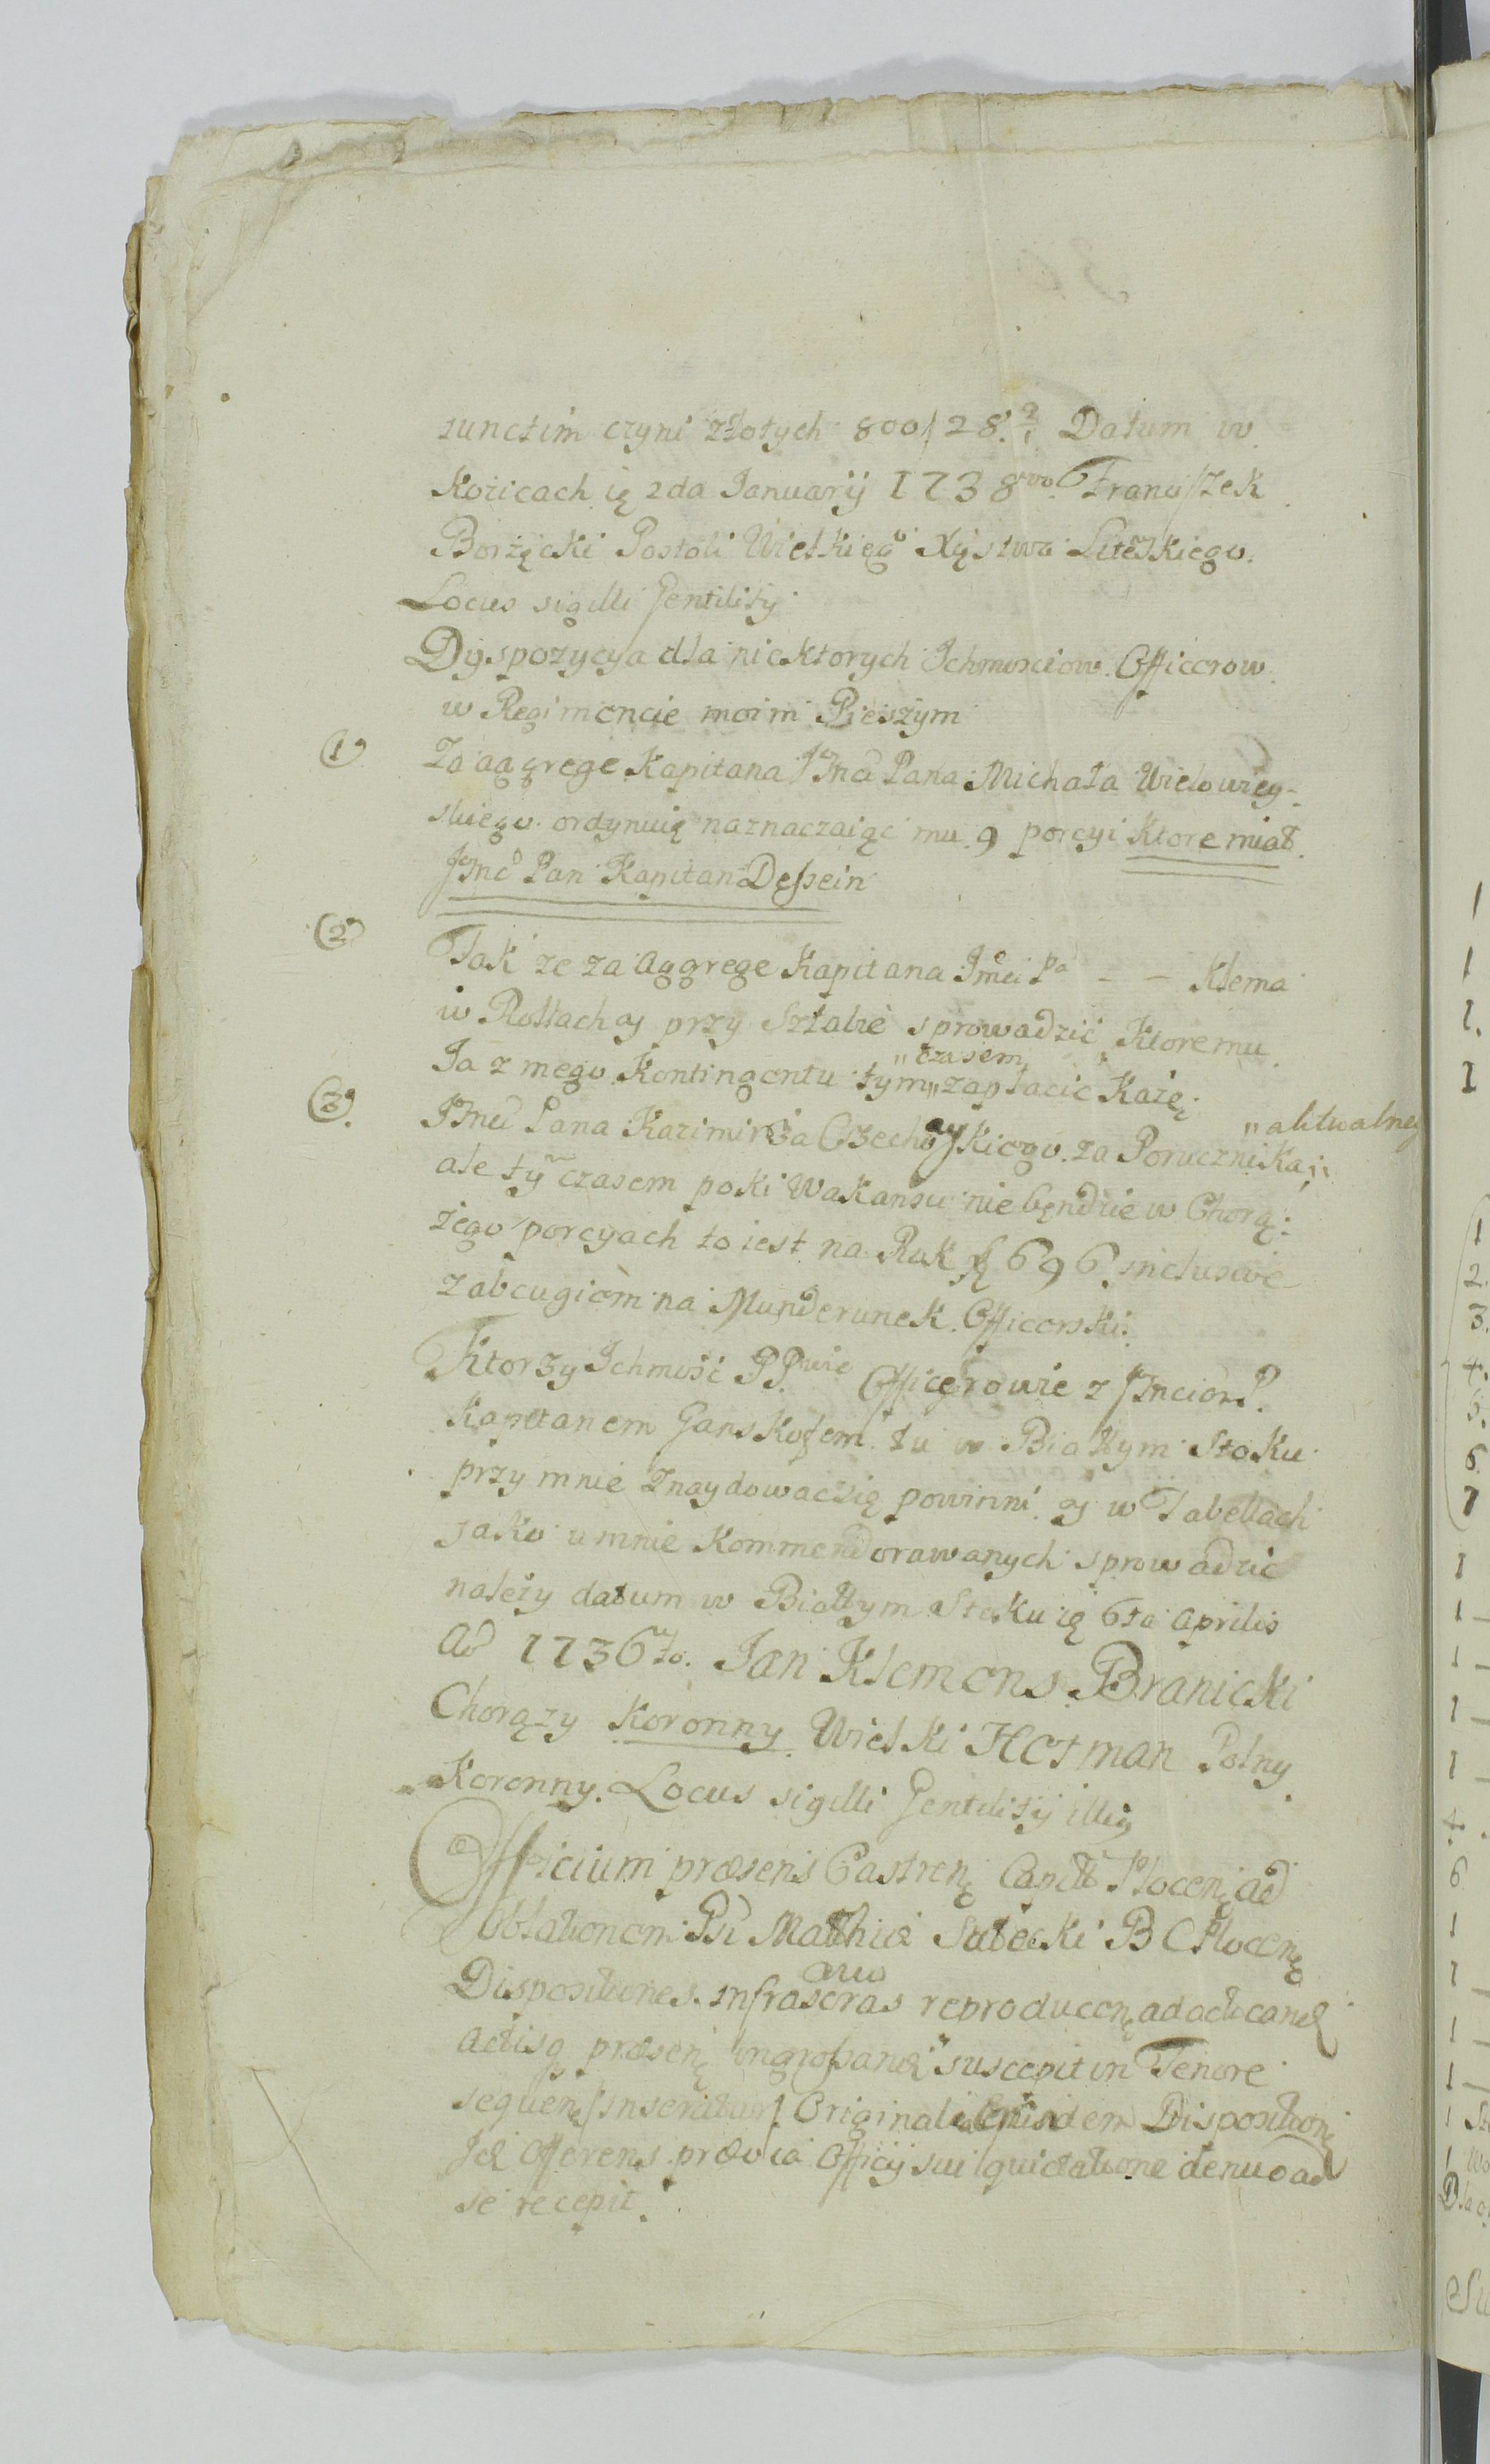 iunctim czyni złotych 800/28.2/1 Datum w
Kozicach ię 2da Januarÿ 1738vo. Franciszek
Borzęcki Postoli Wielkiego Xęstwa Litēskiego.
Locus sigilli Gentilitÿ
Dyspozycya dla niektorych Ichmosciow Officerow
w Regimencie moim Pieszym
1o Za aggrege Kapitana JJmci Pana Michała Wielowiey-
skiego ordynuię naznaczaiąc mu 9 porcyi Ktore miał
Jmc Pan Kapitan Dessein
2o Tak ze za aggrege Kapitana Jmci Pa - - Klema
w Rollach ay przy Sztabie sprowadzić Ktoremu
Ja z mego Kontingentu tym „czasem„ zapłacic Każę
3o. JJmci Pana Kazimirza Czechayskiego za Porucznika „aktwalney
ale tym̃ czasem poki Wakansu nie bęndzie w Chorą:
żego porcyach to iest na Rok zł 696. inclusive
z abcugiem na Munderunek Officerski.
Ktorzy Ichmość PPwie Officerowie z JJmciom P.
Kapitanem Ganskofem tu w Białłym Stoku
przy mnie Znaydowac się powinni ay w Tabellach
jako u mnie Kommenderowanych sprowadzic
należy datum w Białłym Stoku ię 6ta Aprilis
Ad 1736to. Jan Klemens Branicki
Chorąży Koronny Wielki Hetman Polny
Koronny. Locus sigilli Gentilitÿ illig
Officium præsens Castren Capitt Plocen ad
Oblationem Psi Mathiæ Sutecki B C Plocen
Dispositiones infrascras reproducen ad acticand
actisq præsen ingrossand suscepit in Tenore
sequen inseritur Originali Ejusdem Disposition
Id Offerens prævia Officÿ sui quietatione denuo ad
se recepit.